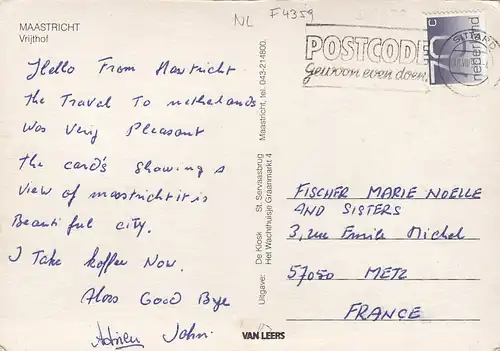 MAASTRICHT
Vrijthof
NL F4359
POSTCODE
Gewoon even doen.
SITTARD
70 c
nederland
Hello From Mastricht
the Travel To netherlands
Was Very Pleasant
the card's showing a
View of maastricht it is
Beautiful city.
I Take koffee Now.
Alors Good Bye
Adrien John
Uitgave: De Kiosk St. Servaasbrug Maastricht, tel. 043-214800.
Het Wachthuisje Graanmarkt 4
VAN LEERS
FISCHER MARIE NOELLE
AND SISTERS
3, rue Emile Michel
57050 METZ
FRANCE